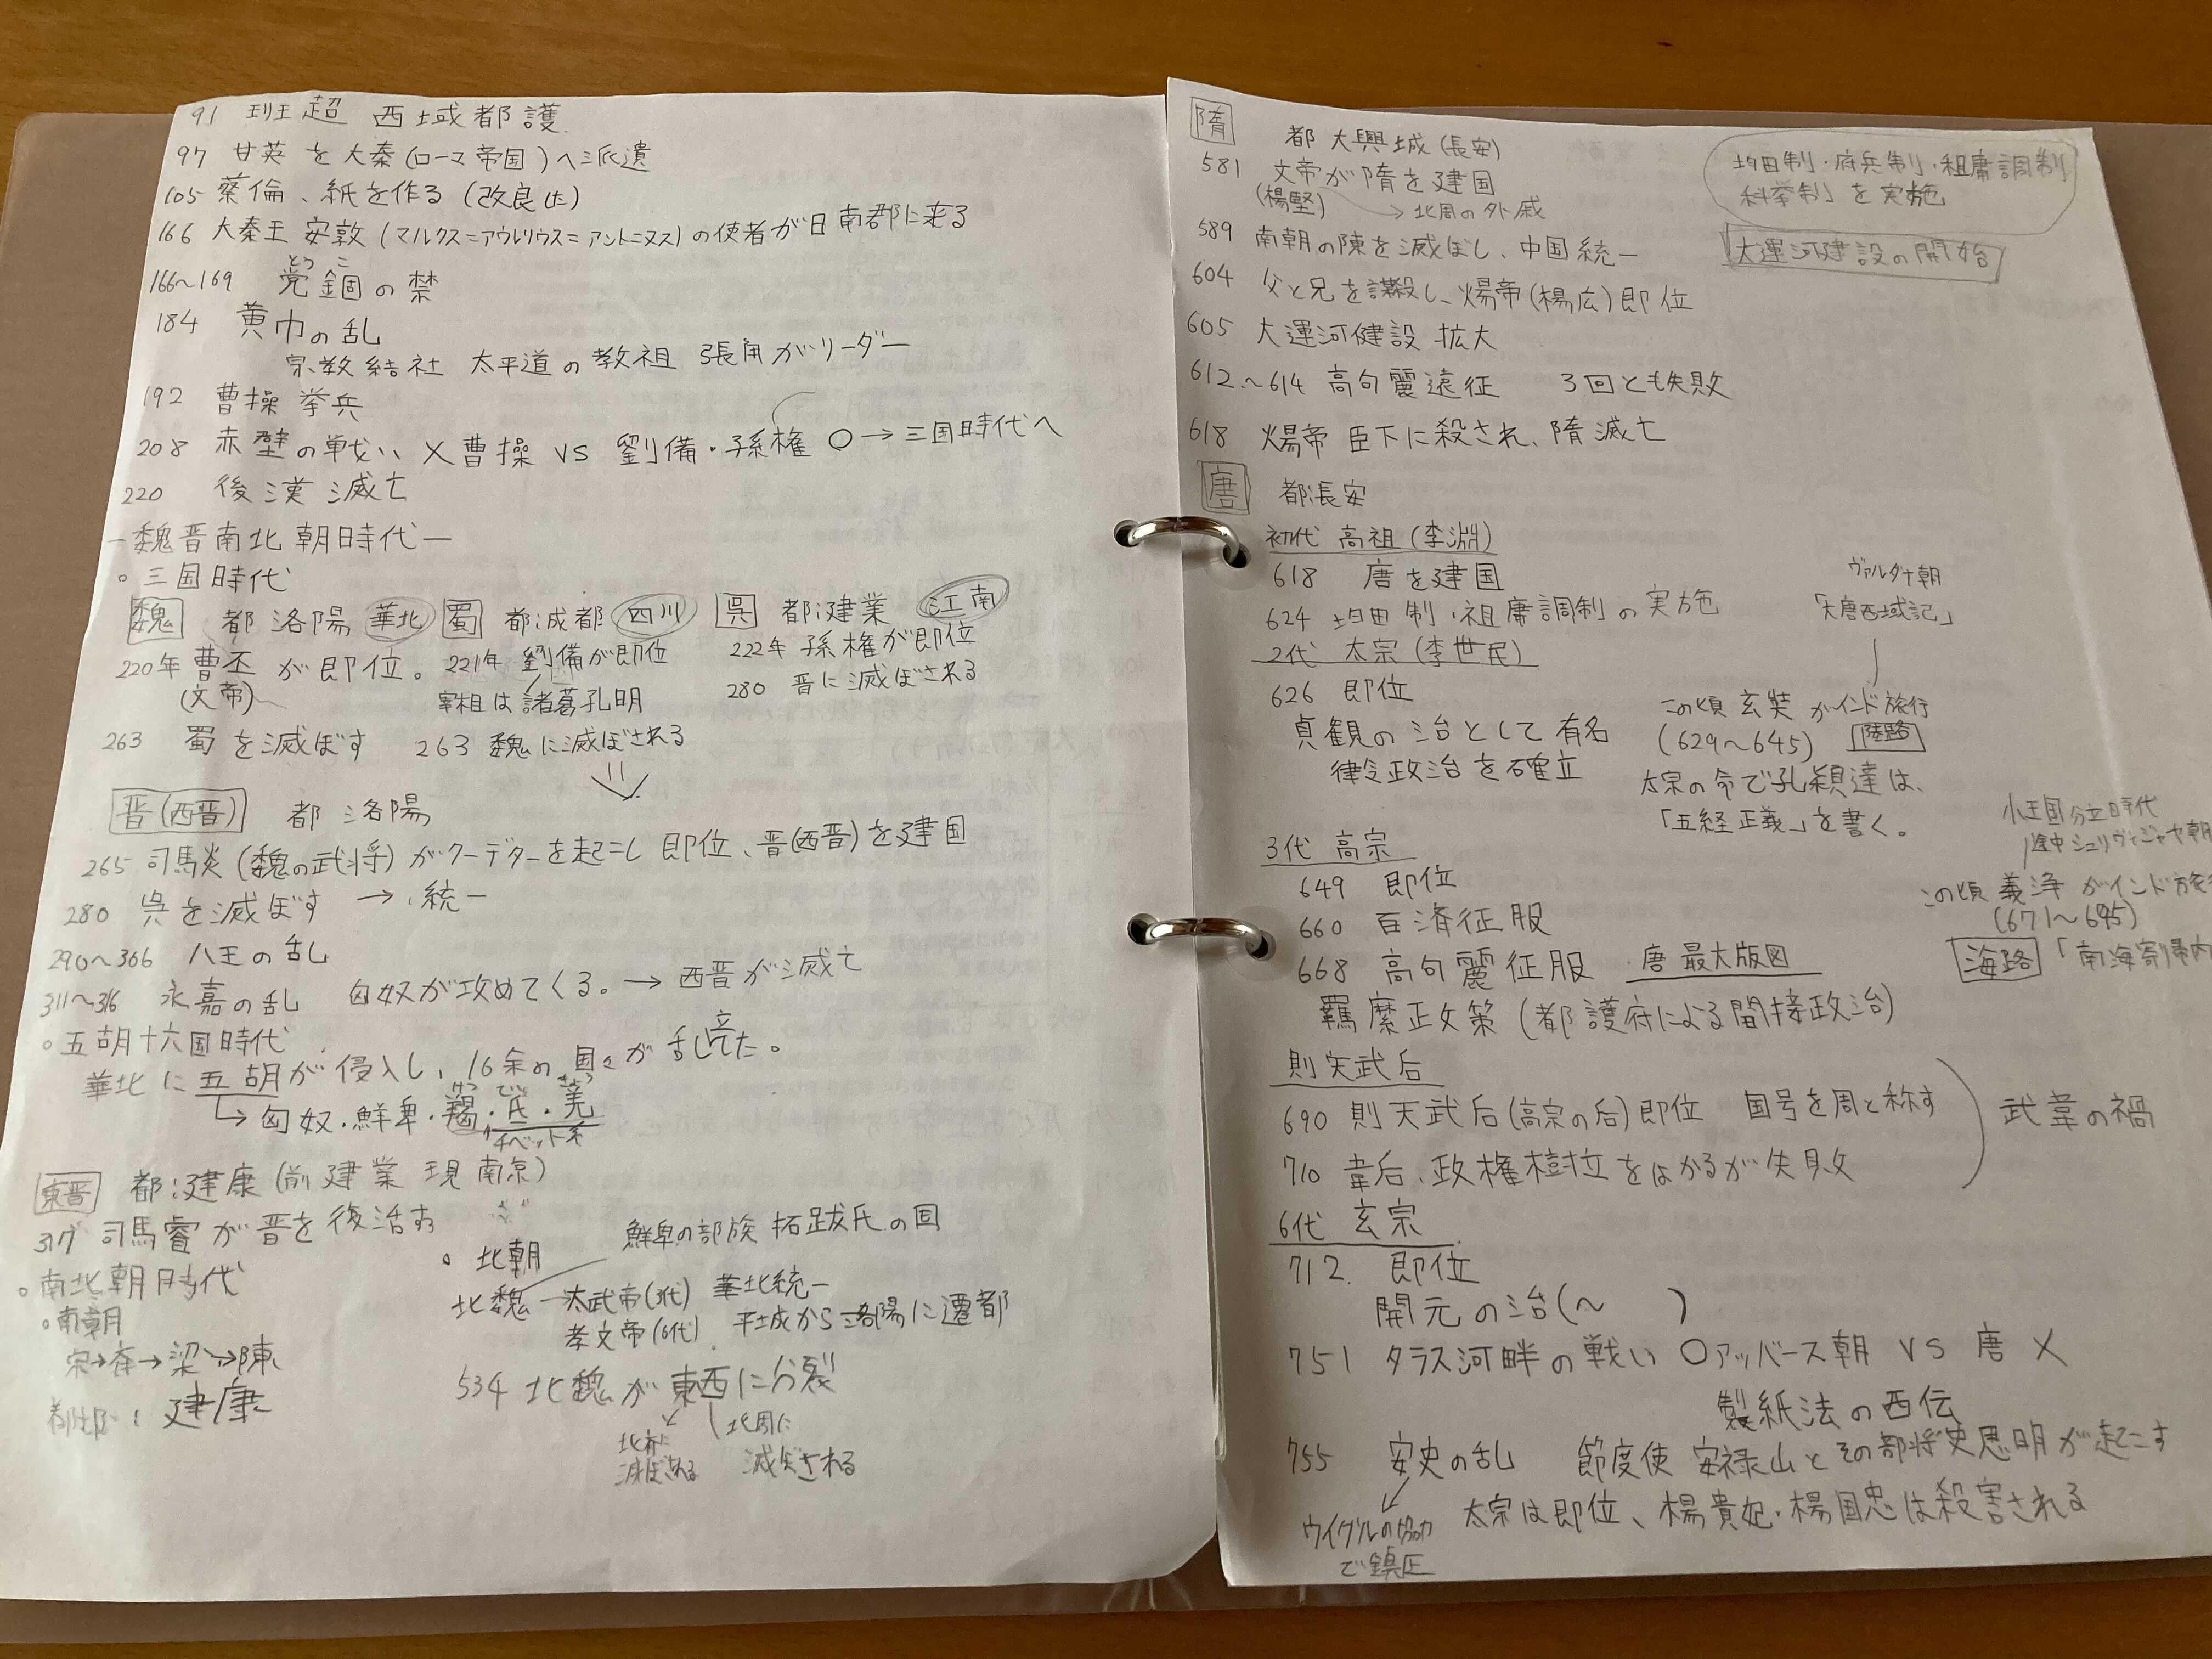 91 班超 西域都護
97 甘英を大秦(ローマ帝国)へ派遣
105 蔡倫、紙を作る(改良した)
166 大秦王 安敦(マルクス=アウレリウス=アントニヌス)の使者が日南郡に来る
とう こ
166〜169 党錮の禁
184 黄巾の乱
宗教結社 太平道の教祖 張角がリーダー
192 曹操 挙兵
208 赤壁の戦い ×曹操 VS 劉備・孫権 ○→三国時代へ
220 後漢滅亡
ー魏晋南北朝時代ー
○三国時代
魏 都洛陽 華北
220年 曹丕が即位。
(文帝)
263 蜀を滅ぼす
蜀 都:成都 四川
221年 劉備が即位
宰相は諸葛孔明
263 魏に滅ぼされる
呉 都:建業 江南
222年 孫権が即位
280 晋に滅ぼされる
晋(西晋) 都 洛陽
265 司馬炎(魏の武将)がクーデターを起こし即位、晋(西晋)を建国
280 呉を滅ぼす → 統一
290〜306 八王の乱
311〜316 永嘉の乱 匈奴が攻めてくる。→ 西晋が滅亡
○五胡十六国時代
華北に五胡が侵入し、16余の国々が乱立した。
→匈奴・鮮卑・羯・氐・羌
けつ てい きょう
チベット系
東晋 都:建康(前 建業 現 南京)
317 司馬睿が晋を復活す
○南北朝時代
○南朝
宋→斉→梁→陳
都は:建康
○北朝
鮮卑の部族 拓跋氏の国
北魏→太武帝(3代) 華北統一
孝文帝(6代) 平城から洛陽に遷都
534 北魏が東西に分裂
北斉に滅ぼされる
北周に滅ぼされる
隋 都 大興城(長安)
581 文帝が隋を建国
(楊堅) → 北周の外戚
589 南朝の陳を滅ぼし、中国統一
604 父と兄を謀殺し、煬帝(楊広)即位
605 大運河健設 拡大
612〜614 高句麗遠征 3回とも失敗
618 煬帝 臣下に殺され、隋滅亡
均田制・府兵制・租庸調制
科挙制」を実施
大運河建設の開始
唐 都:長安
初代 高祖(李淵)
618 唐を建国
624 均田制・租庸調制の実施
2代 太宗(李世民)
626 即位
貞観の治として有名
律令政治を確立
ヴァルダナ朝
「大唐西域記」
この頃 玄奘がインド旅行
(629〜645) 陸路
太宗の命で孔穎達は、
「五経正義」を書く。
3代 高宗
649 即位
660 百済征服
668 高句麗征服 唐 最大版図
羈縻政策(都護府による間接政治)
小王国分立時代
途中シュリヴィジャヤ朝
この頃 義浄がインド旅
(671〜695)
海路 「南海寄帰内
則天武后
690 則天武后(高宗の后)即位 国号を周と称す
710 韋后、政権樹立をはかるが失敗
武韋の禍
6代 玄宗
712. 即位
開元の治(〜 )
751 タラス河畔の戦い ○アッバース朝 VS 唐 ×
製紙法の西伝
755 安史の乱 節度使 安禄山とその部将史思明が起こす
ウイグルの協力で鎮圧
太宗は即位、楊貴妃・楊国忠は殺害される